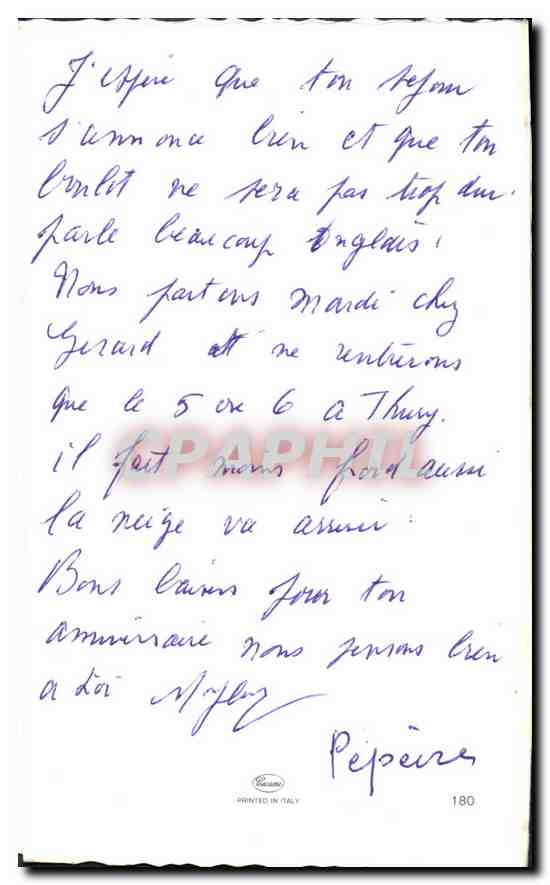 J'espère que ton séjour
s'annonce bien et que ton
boulot ne sera pas trop dur.
parle beaucoup Anglais !
Nous partons mardi chez
Gerard et ne rentrerons
que le 5 ou 6 a Thury.
il fait moins froid aussi
la neige va arriver.
Bons baisers pour ton
anniversaire nous pensons bien
a toi
Pépère
CPAPHIL
PRINTED IN ITALY 180